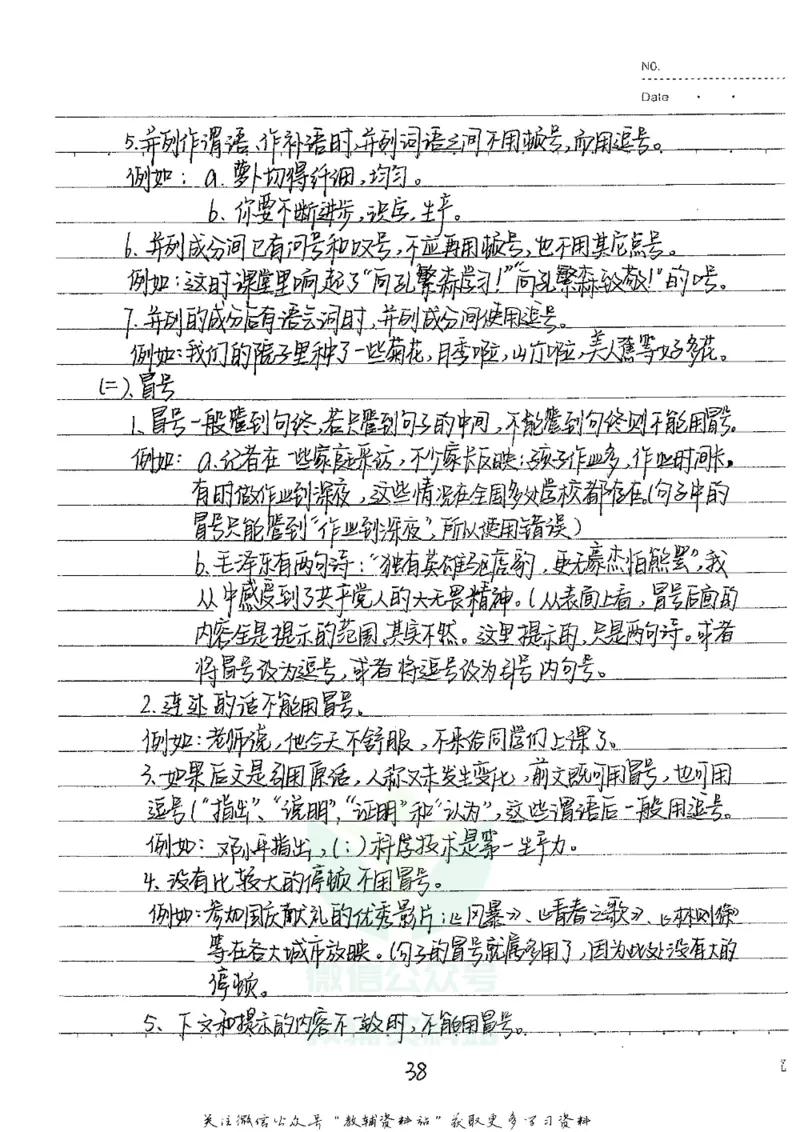 NO.
Date
5.并列作谓语、作补语时,并列词语之间不用顿号,应用逗号。
例如：a.萝卜切得纤细,均匀。
b、你要不断进步,识字,生产。
6.并列成分间已有问号和叹号,不应再用顿号,也不用其它点号。
例如:这时课堂里响起了“向孔繁森学习!”“向孔繁森致敬!”的口号。
7.并列的成分后有语气词时,并列成分间使用逗号。
例如:我们的院子里种了一些菊花,月季啦,山竹啦,美人蕉等好多花。
(二).冒号
1、冒号一般管到句终,若只管到句子的中间,不能管到句终则不能用冒号。
例如：a.记者在一些家庭采访,不少家长反映:孩子作业多,作业时间长,
有时做作业到深夜,这些情况在全国多处学校都存在。(句子中的
冒号只能管到“作业到深夜”,所以使用错误)
b.毛泽东有两句诗：“独有英雄驱虎豹,更无豪杰怕熊罴”,我
从中感受到了共产党人的大无畏精神。(从表面上看,冒号后面的
内容全是提示的范围,其实不然。这里提示的,只是两句诗。或者
将冒号设为逗号,或者将逗号设为引号内句号。
2.转述的话不能用冒号。
例如:老师说,他今天不舒服,不来给同学们上课了。
3.如果后文是引用原话,人称又未发生变化,前文既可用冒号,也可用
逗号(“指出”、“说明”、“证明”和“认为”,这些谓语后一般用逗号。
例如：邓小平指出,(：)科学技术是第一生产力。
4、没有比较大的停顿不用冒号。
例如:参加国庆献礼的优秀影片:《风暴》、《青春之歌》、《林则徐》
等在各大城市放映。(句子的冒号就属多用了,因为此处没有大的
停顿。
5、下文和提示的内容不一致时,不能用冒号。
微信公众号
教辅资料站
38
关注微信公众号“教辅资料站”获取更多学习资料